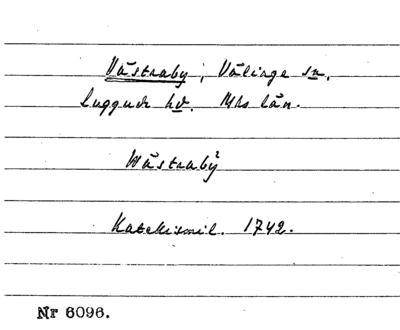 Västraby, Välinge sn.
Luggude hd. Mhs län.
Wästraby
Katekismil. 1742.
Nr 6096.